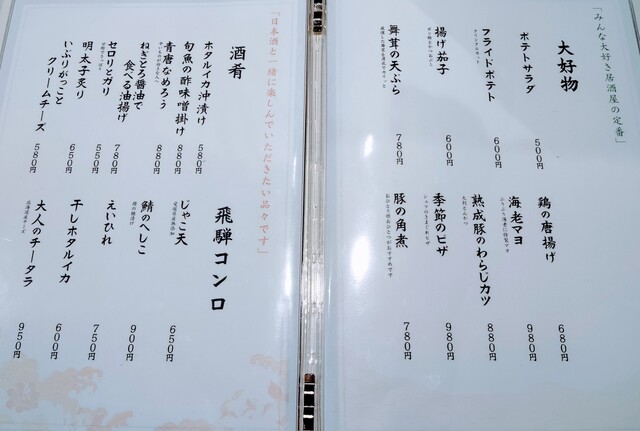 「みんな大好き居酒屋の定番」
大好物
ポテトサラダ
500円
フライドポテト
600円
揚げ茄子
600円
舞茸の天ぷら
780円
鶏の唐揚げ
680円
海老マヨ
980円
熟成豚のわらじカツ
880円
季節のピザ
980円
豚の角煮
780円
「日本酒と一緒に楽しんでいただきたい品々です」
酒肴
ホタルイカ沖漬け
580円
旬魚の酢味噌掛け
880円
青唐なめろう
880円
ねぎとろ醤油で
食べる油揚げ
780円
セロリとガリ
550円
明太子炙り
650円
いぶりがっこと
クリームチーズ
580円
飛騨コンロ
じゃこ天
650円
鯖のへしこ
900円
えいひれ
750円
干しホタルイカ
600円
大人のチータラ
950円